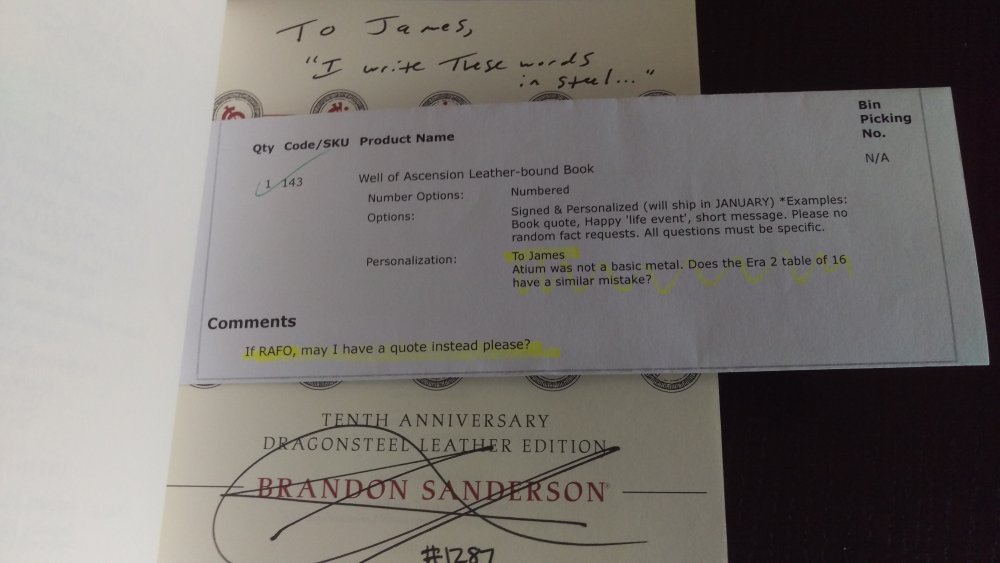 To James,
"I write these words
in steel..."
Qty Code/SKU Product Name Bin
Picking
No.
1 143 Well of Ascension Leather-bound Book N/A
Number Options: Numbered
Options: Signed & Personalized (will ship in JANUARY) *Examples:
Book quote, Happy 'life event', short message. Please no
random fact requests. All questions must be specific.
Personalization: To James
Atium was not a basic metal. Does the Era 2 table of 16
have a similar mistake?
Comments
If RAFO, may I have a quote instead please?
TENTH ANNIVERSARY
DRAGONSTEEL LEATHER EDITION
BRANDON SANDERSON®
#1287